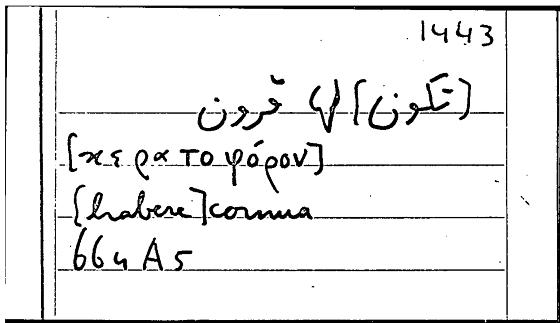 1443
[تكون] لها قرون
[κερατοφόρον]
[habere] cornua
664 A 5